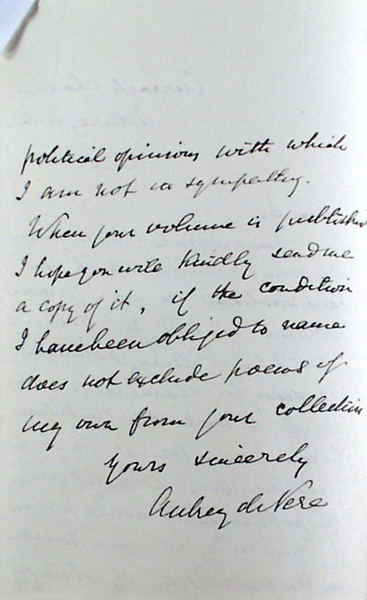 political opinions with which
I am not in sympathy.
When your volume is published
I hope you will kindly send me
a copy of it, if the condition
I have been obliged to name
does not exclude poems of
my own from your collection
Yours sincerely
Aubrey de Vere